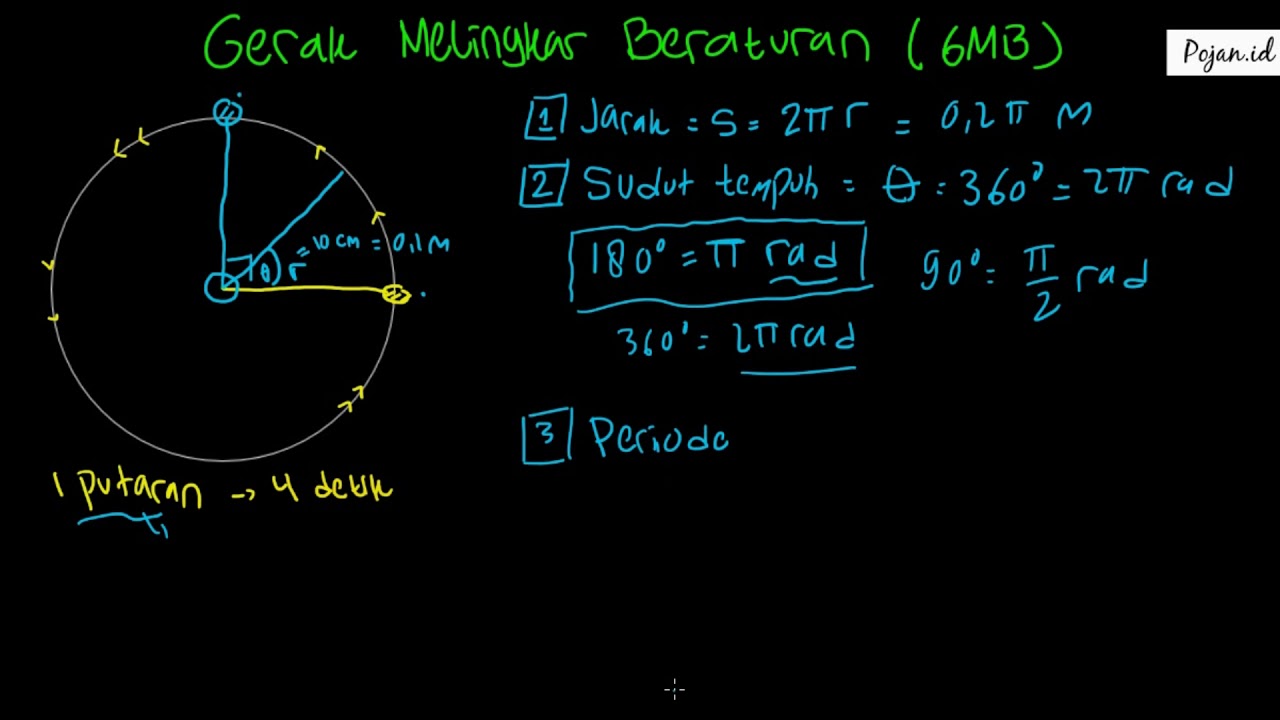 Gerak Melingkar Beraturan (GMB)
Pojan.id
1 Jarak = S = 2πr = 0,2π M
2 Sudut tempuh = θ = 360° = 2π rad
180° = π rad
90° = π/2 rad
360° = 2π rad
θ r = 10 cm = 0,1 M
3 Periode
1 putaran → 4 detik